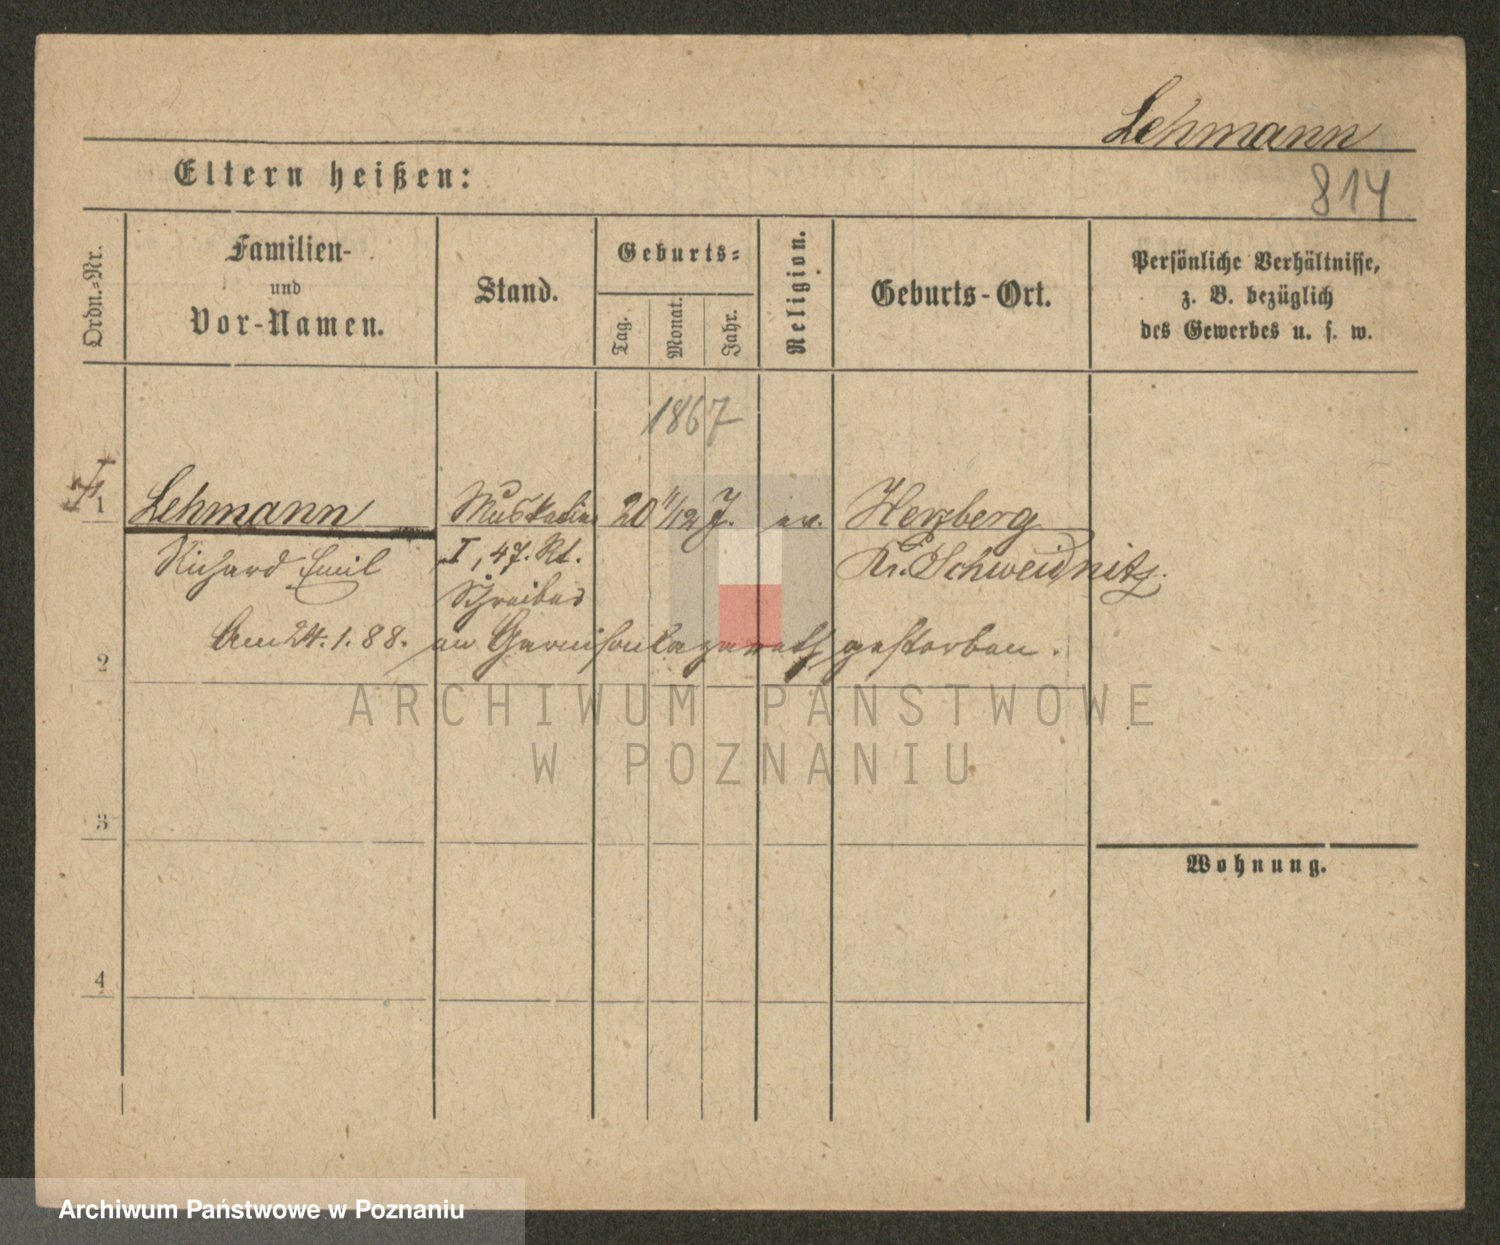 Lehmann
814
Eltern heißen:
Ordn.-Nr.
Familien-
und
Vor-Namen.
Stand.
Geburts-
Tag.
Monat.
Jahr.
Religion.
Geburts-Ort.
Persönliche Verhältnisse,
z. B. bezüglich
des Gewerbes u. s. w.
1867
1 Lehmann Musketier 20 11/12 J. ev. Herzberg
Richard Emil I, 47. Rt. Kr. Schweidnitz.
Schreiber
Am 24.1.88. im Garnisonlazareth gestorben.
2
ARCHIWUM PAŃSTWOWE
W POZNANIU
3
Wohnung.
4
Archiwum Państwowe w Poznaniu